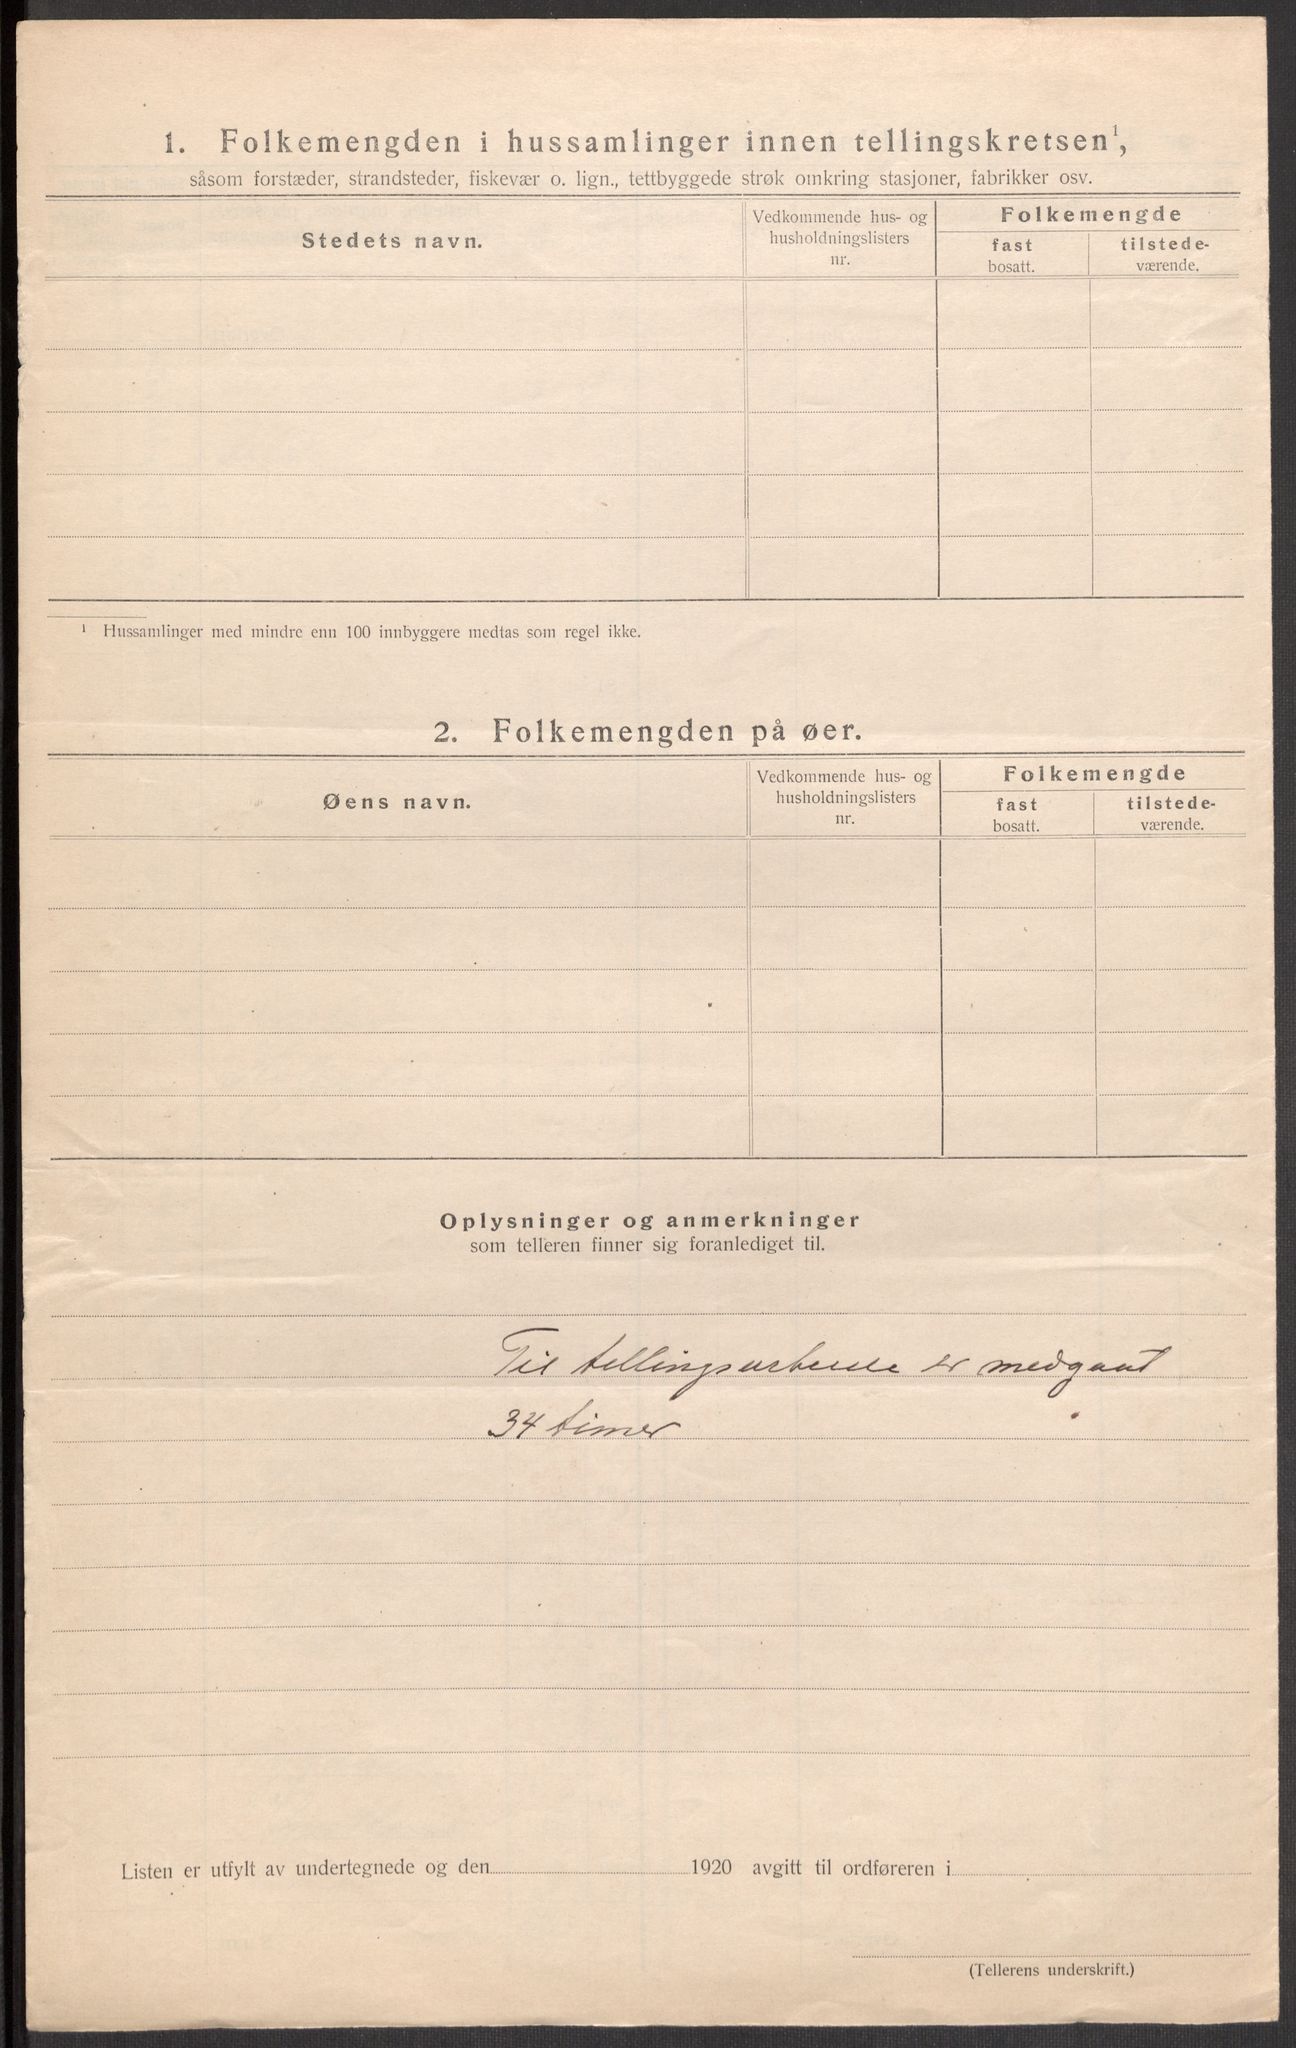 1. Folkemengden i hussamlinger innen tellingskretsen¹,
såsom forstæder, strandsteder, fiskevær o. lign., tettbyggede strøk omkring stasjoner, fabrikker osv.
Stedets navn.
Vedkommende hus- og
husholdningslisters
nr.
Folkemengde
fast
bosatt.
tilstede-
værende.
¹ Hussamlinger med mindre enn 100 innbyggere medtas som regel ikke.
2. Folkemengden på øer.
Øens navn.
Vedkommende hus- og
husholdningslisters
nr.
Folkemengde
fast
bosatt.
tilstede-
værende.
Oplysninger og anmerkninger
som telleren finner sig foranlediget til.
Til tellingsarbeide er medgaat
34 timer
Listen er utfylt av undertegnede og den 1920 avgitt til ordføreren i
(Tellerens underskrift.)